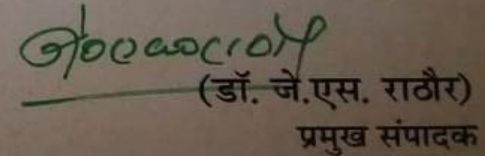 (डॉ. जे.एस. राठौर)
प्रमुख संपादक